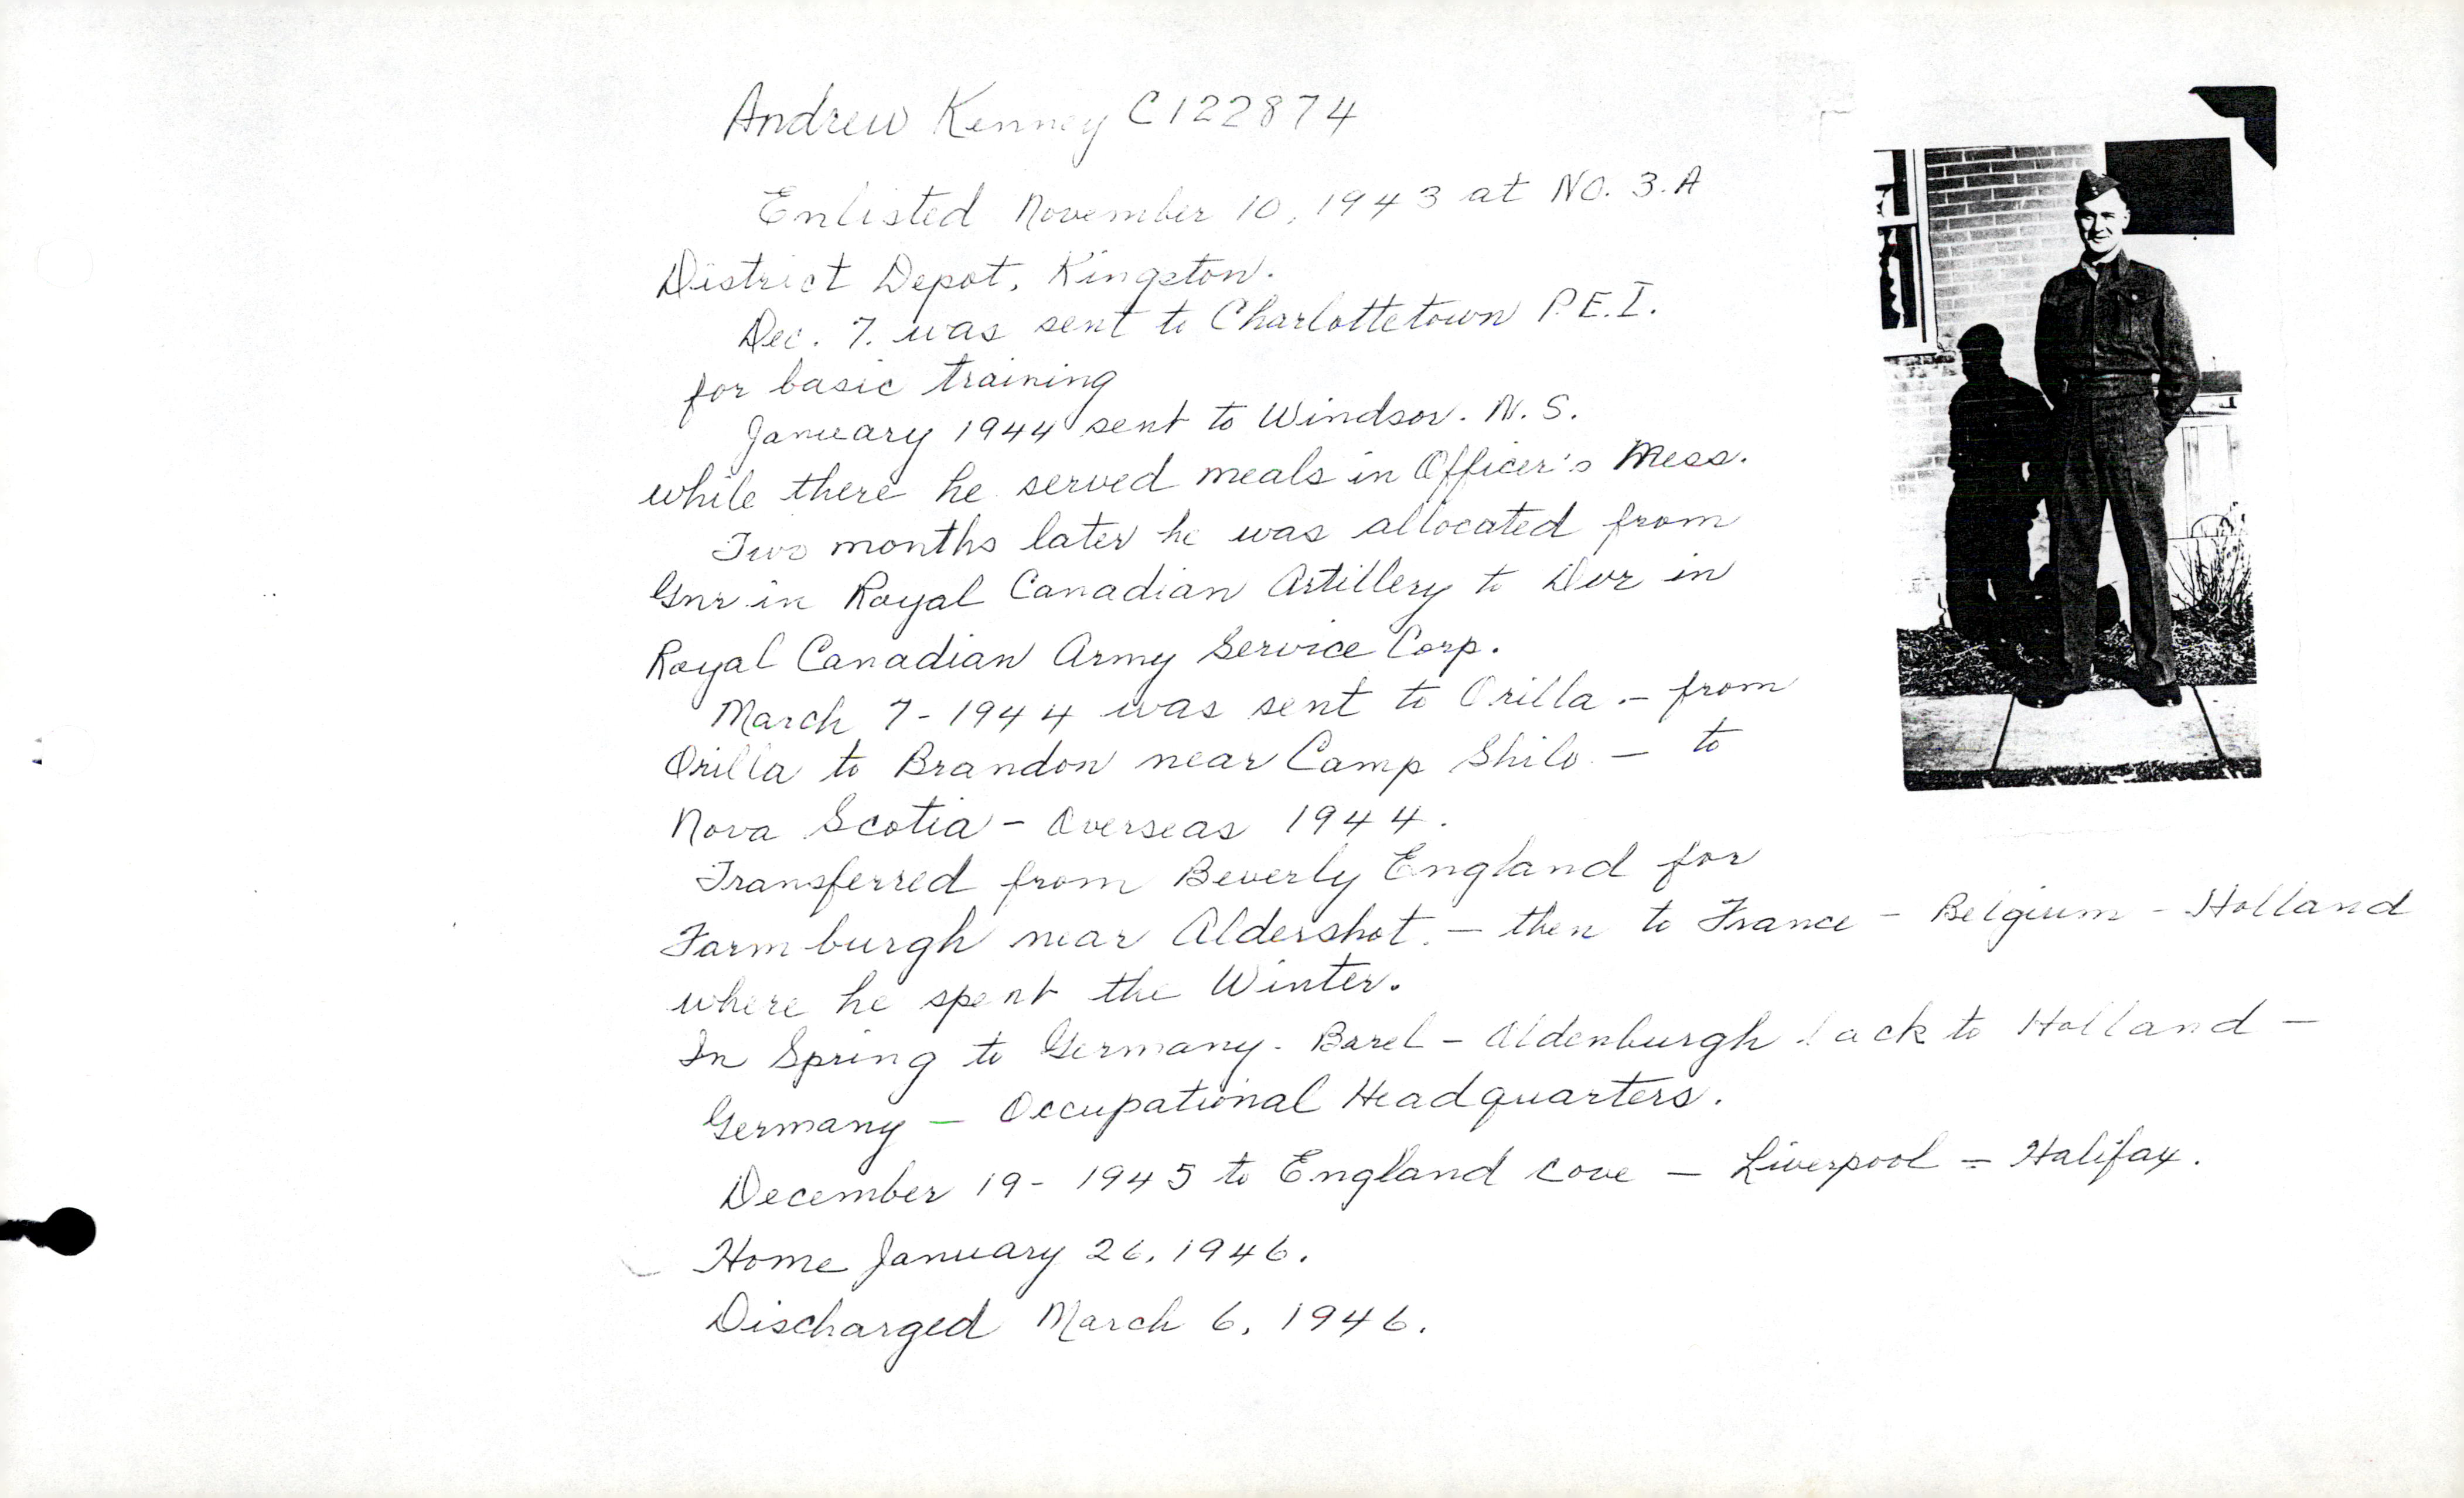 Andrew Kenney C122874
Enlisted November 10, 1943 at NO. 3.A
District Depot, Kingston.
Dec. 7. was sent to Charlottetown P.E.I.
for basic training
January 1944 sent to Windsor. N.S.
while there he served meals in Officer's Mess.
Two months later he was allocated from
Gnr in Royal Canadian Artillery to Dvr in
Royal Canadian Army Service Corp.
March 7-1944 was sent to Orilla - from
Orilla to Brandon near Camp Shilo - to
Nova Scotia - Overseas 1944.
Transferred from Beverly England for
Farmburgh near Aldershot. - then to France - Belgium - Holland
where he spent the Winter.
In Spring to Germany - Barel - Oldenburgh back to Holland -
Germany - Occupational Headquarters.
December 19 - 1945 to England cove - Liverpool - Halifax.
Home January 26, 1946.
Discharged March 6, 1946.